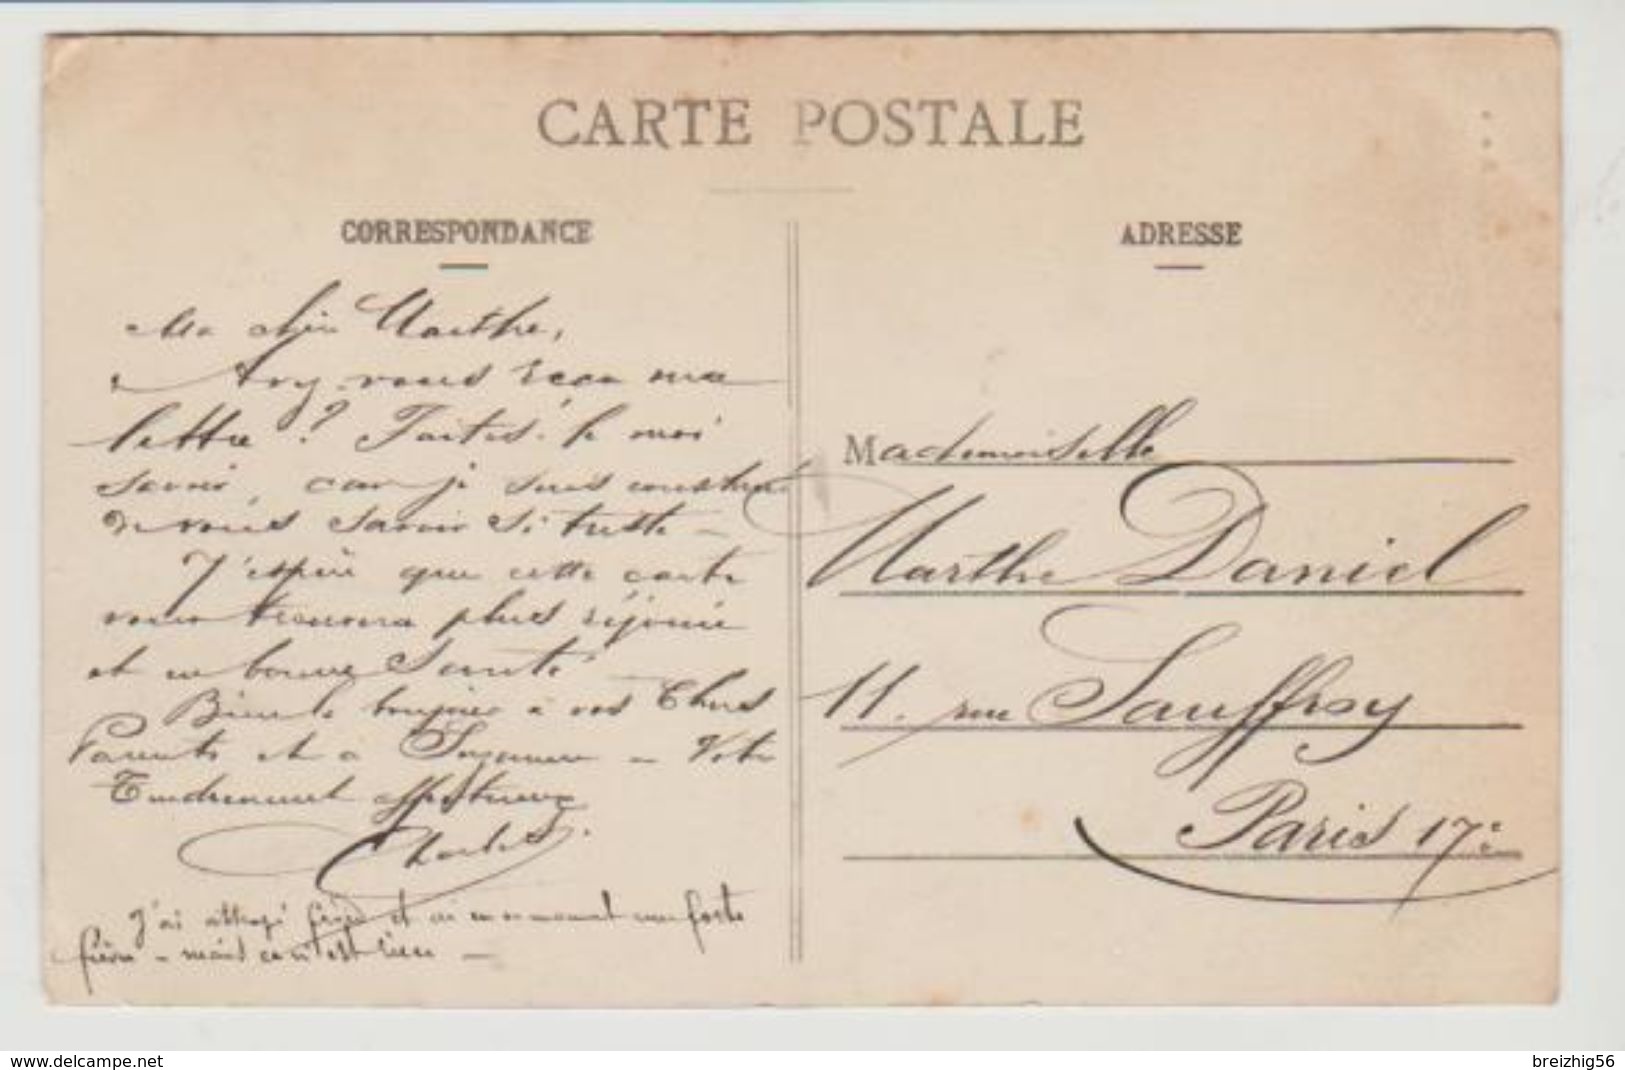 CARTE POSTALE
CORRESPONDANCE
Ma chère Marthe,
Avez-vous reçu ma
lettre ? Faites-le moi
savoir, car je suis
de vous savoir si triste –
J'espère que cette carte
vous trouvera plus réjouie
et en bonne Santé
Bien le bonjour à vos Chers
Parents et à Suzanne – Votre
Tendrement affectueux
Charles.
J'ai attrapé froid et ai en ce moment une forte
fièvre – mais ce n'est rien –
ADRESSE
Mademoiselle
Marthe Daniel
11. rue Sauffroy
Paris 17e
www.delcampe.net
breizhig56